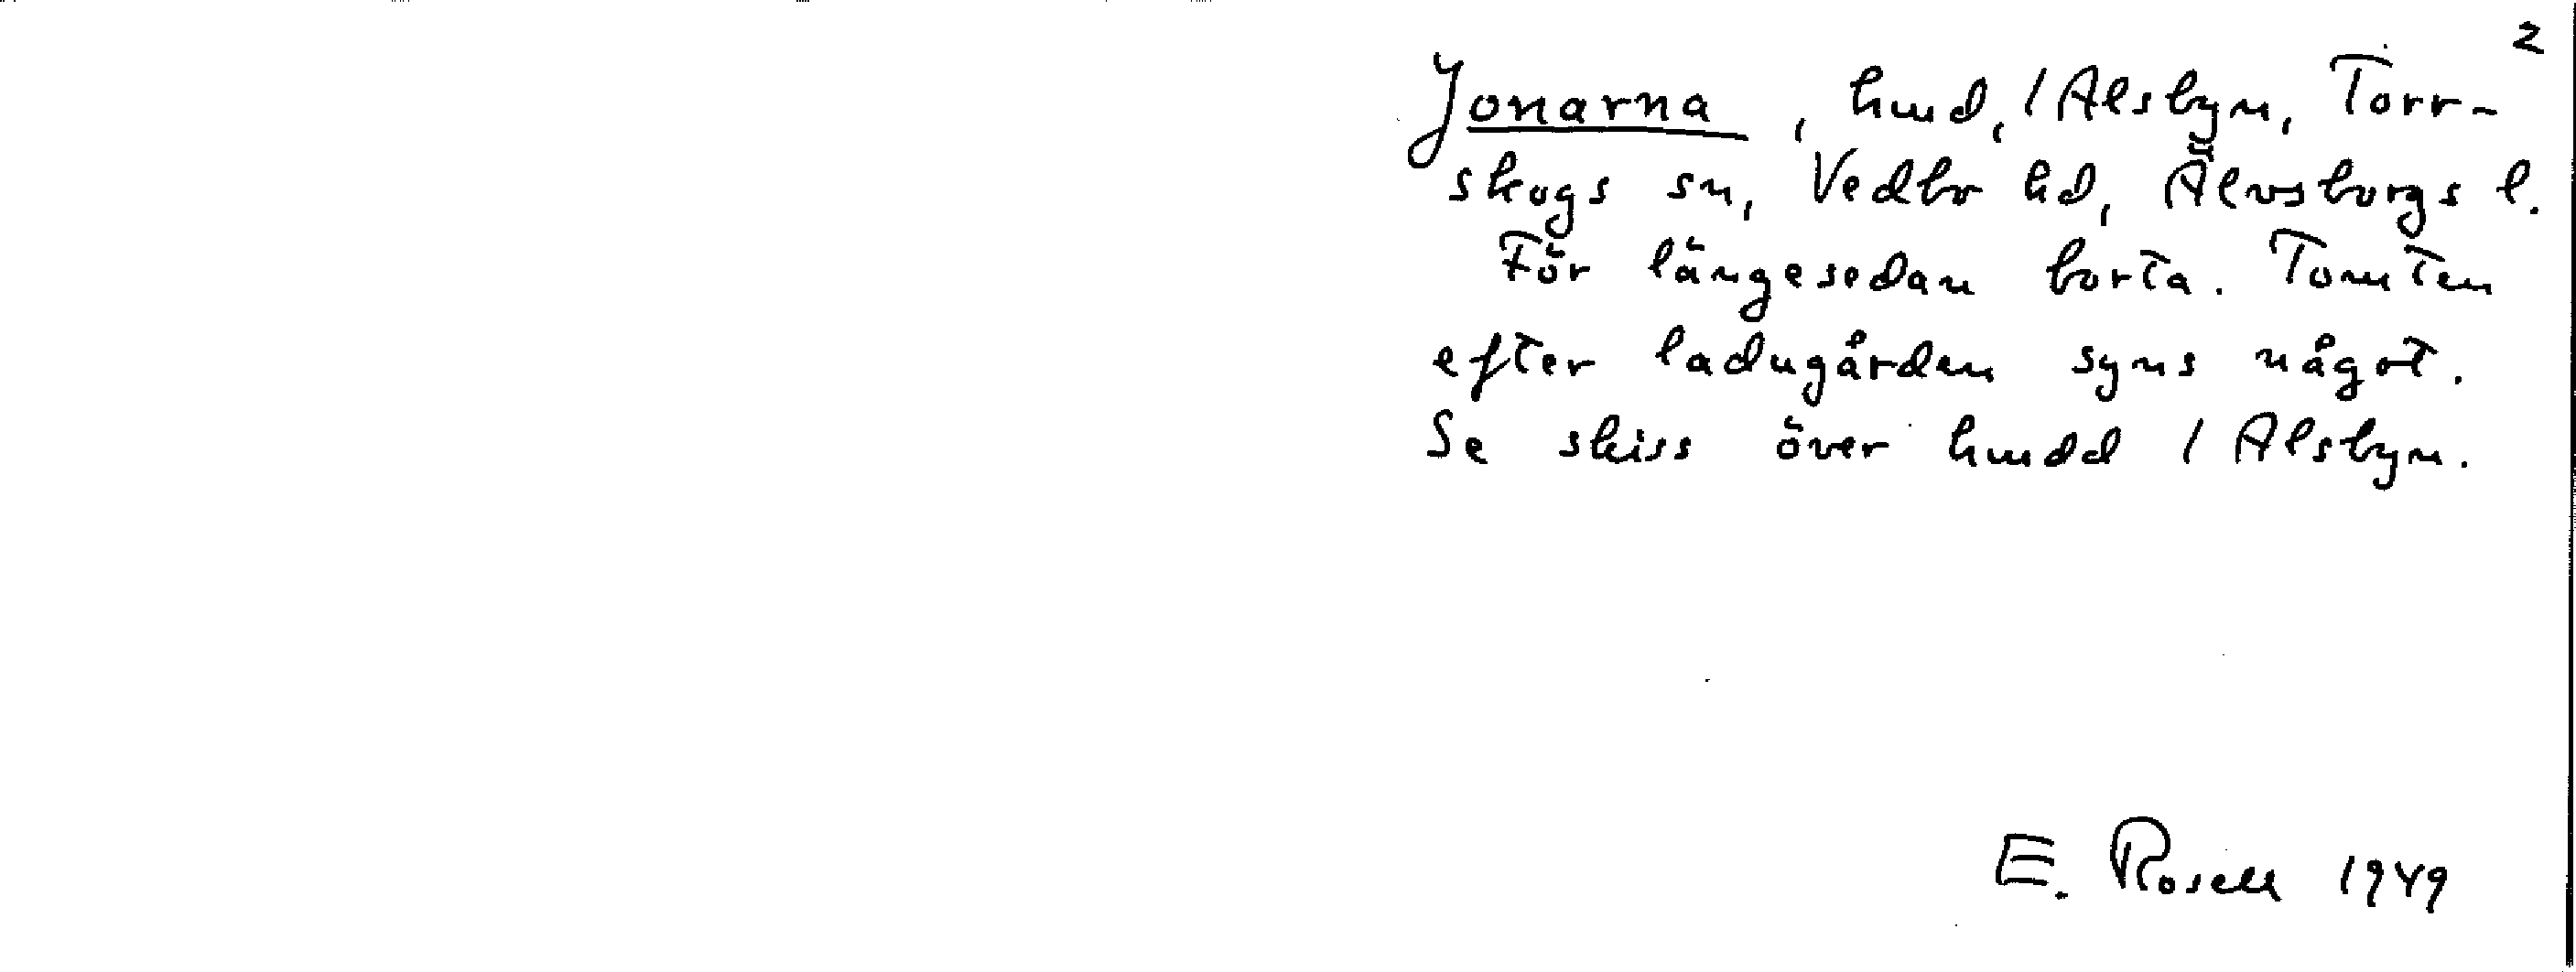 2
Jonarna, hmd, 1 Alsbyn, Torr-
skogs sn, Vedbo hd, Älvsborgs l.
För längesedan borta. Tomten
efter ladugården syns något.
Se skiss över hmdd 1 Alsbyn.
E. Rosell 1949